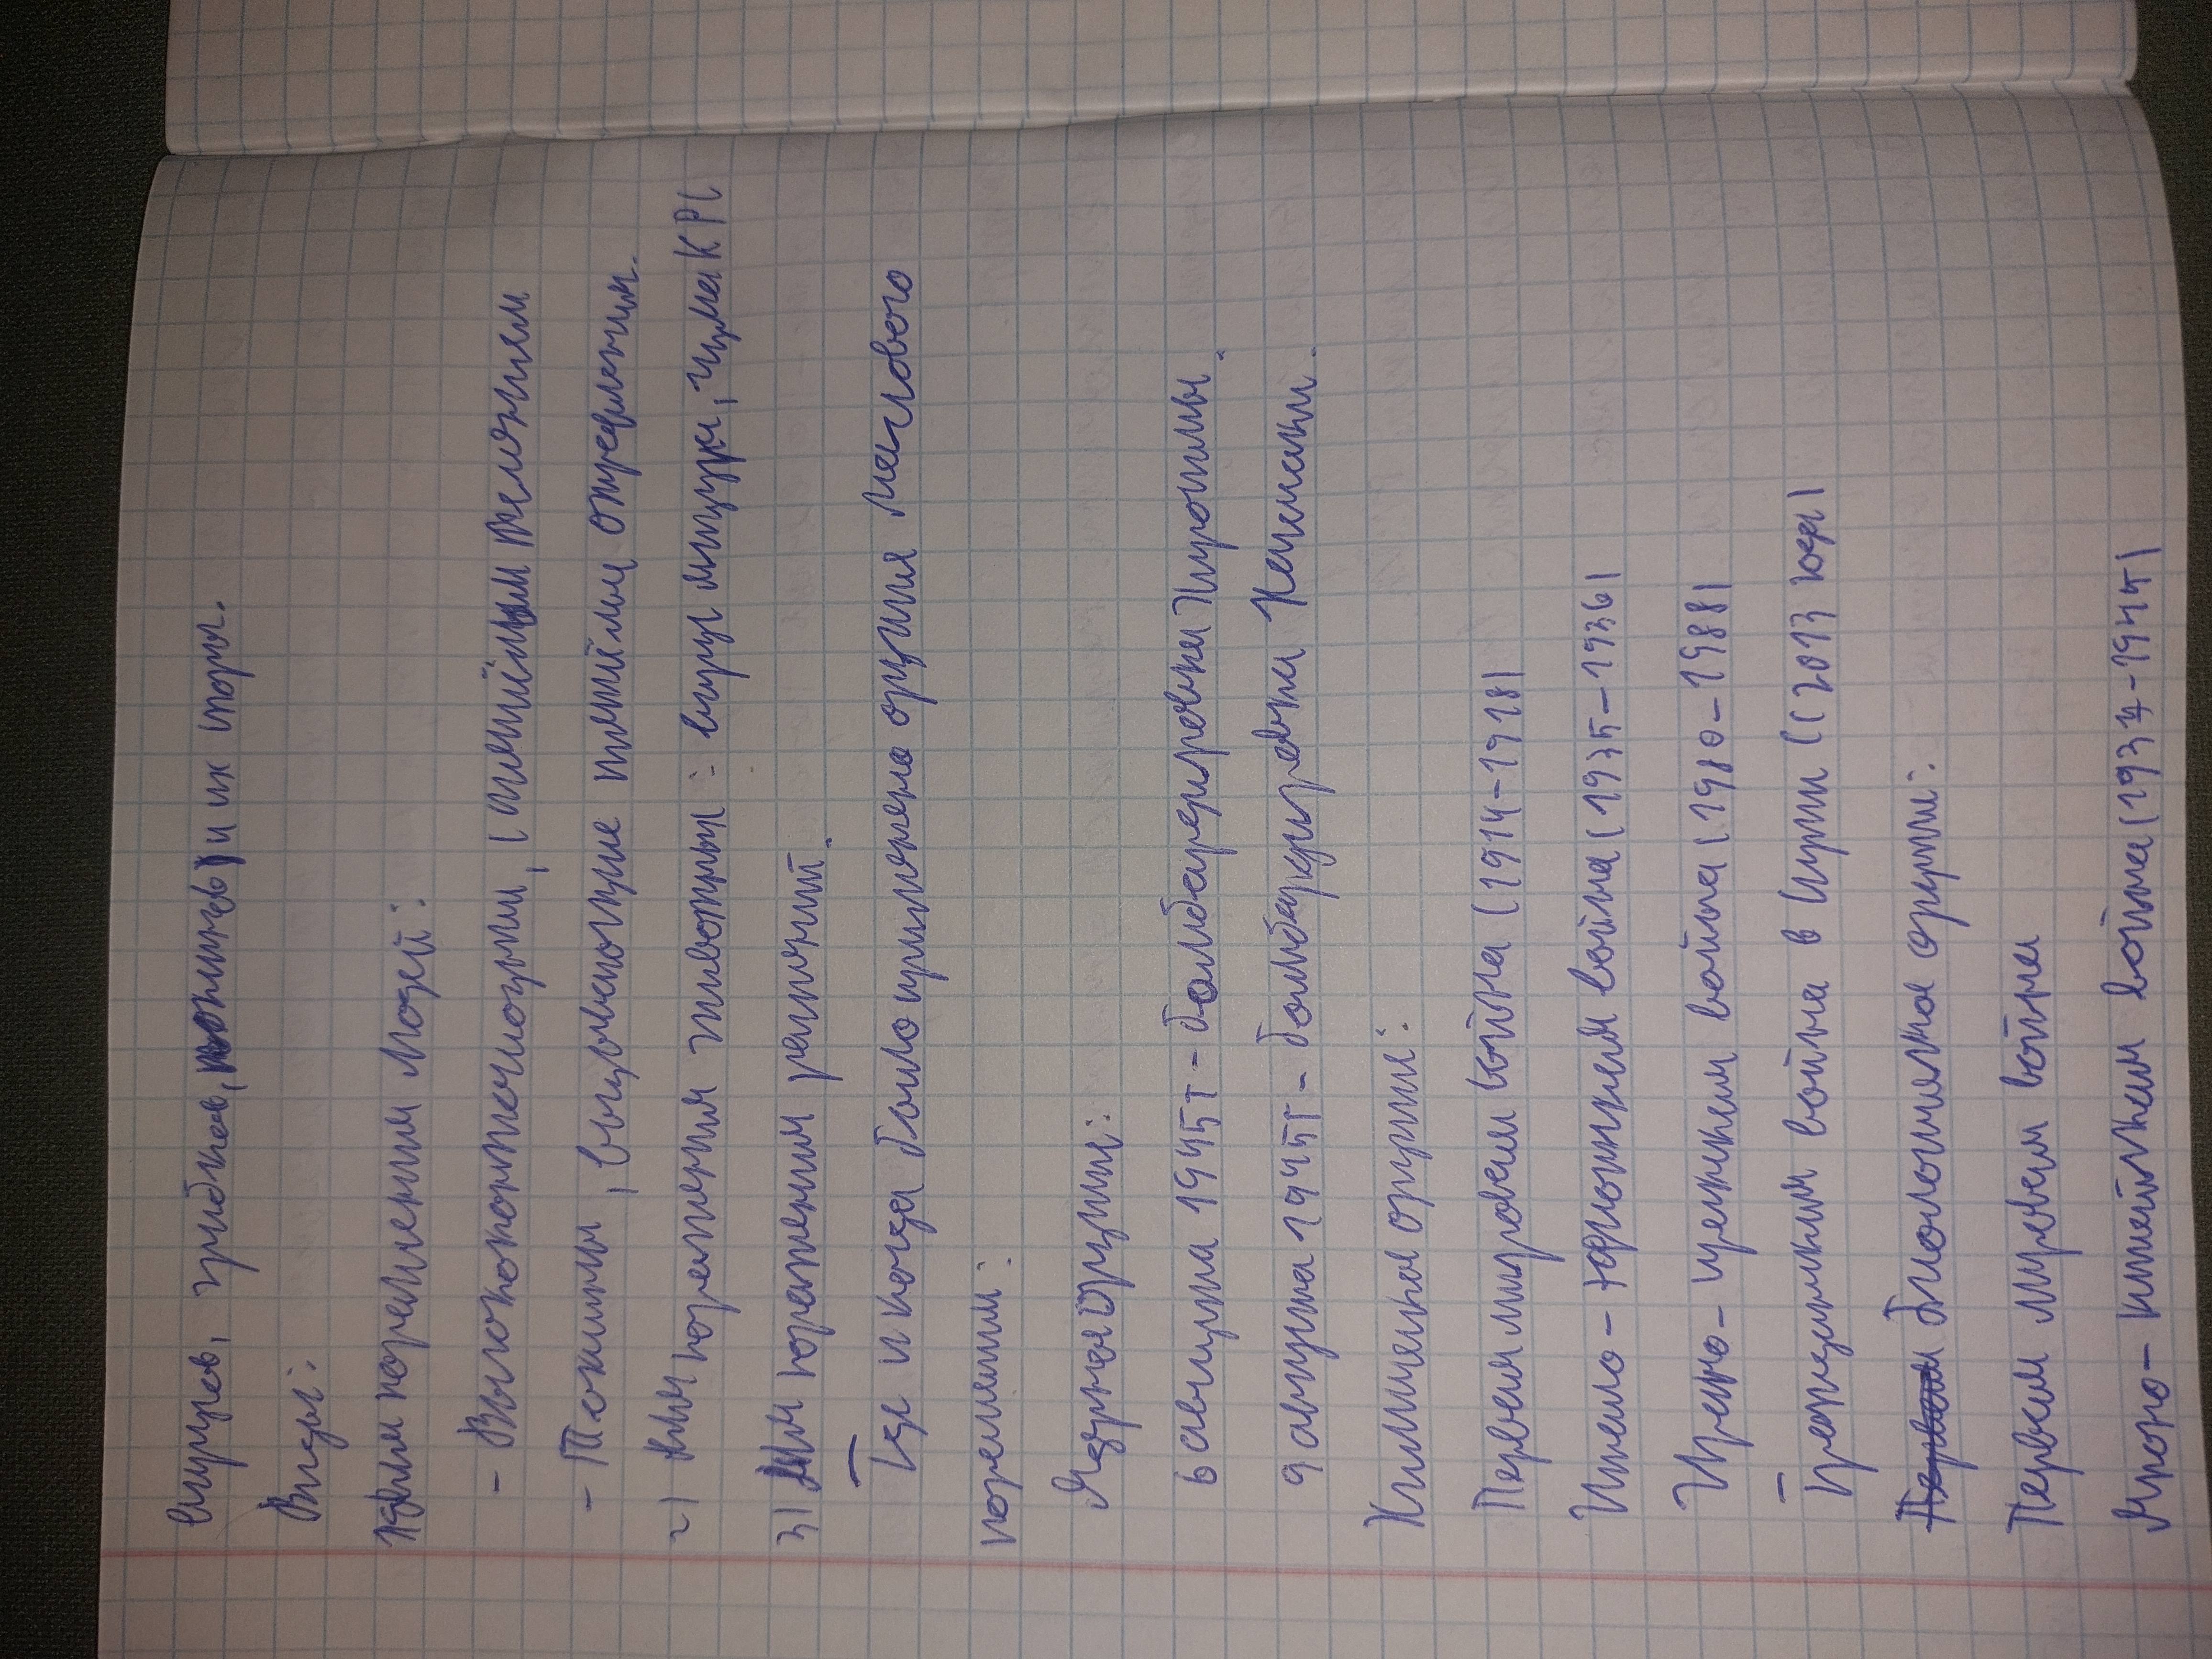 вирусов, грибков, токсинов) и их спор.
Виды:
Для поражения людей:
- Высококонтагиозные, с тяжёлым течением
- Токсины, вызывающие тяжёлые отравления.
2) Для поражения животных: ящур,
3) Для поражения растений.
Где и когда было применено оружия массового
поражения:
Ядерная оружия:
6 августа 1945г - бомбардировка Хиросимы.
9 августа 1945г - бомбардировка Нагасаки.
Химическая оружия:
Первая мировая война (1914-1918)
Итало - эфиопская война (1935-1936)
Ирано - иракская война (1980-1988)
Гражданская война в Сирии (с 2013 года)
биологическая оружия:
Первая мировая война
Японо - китайская война (1937-1945)